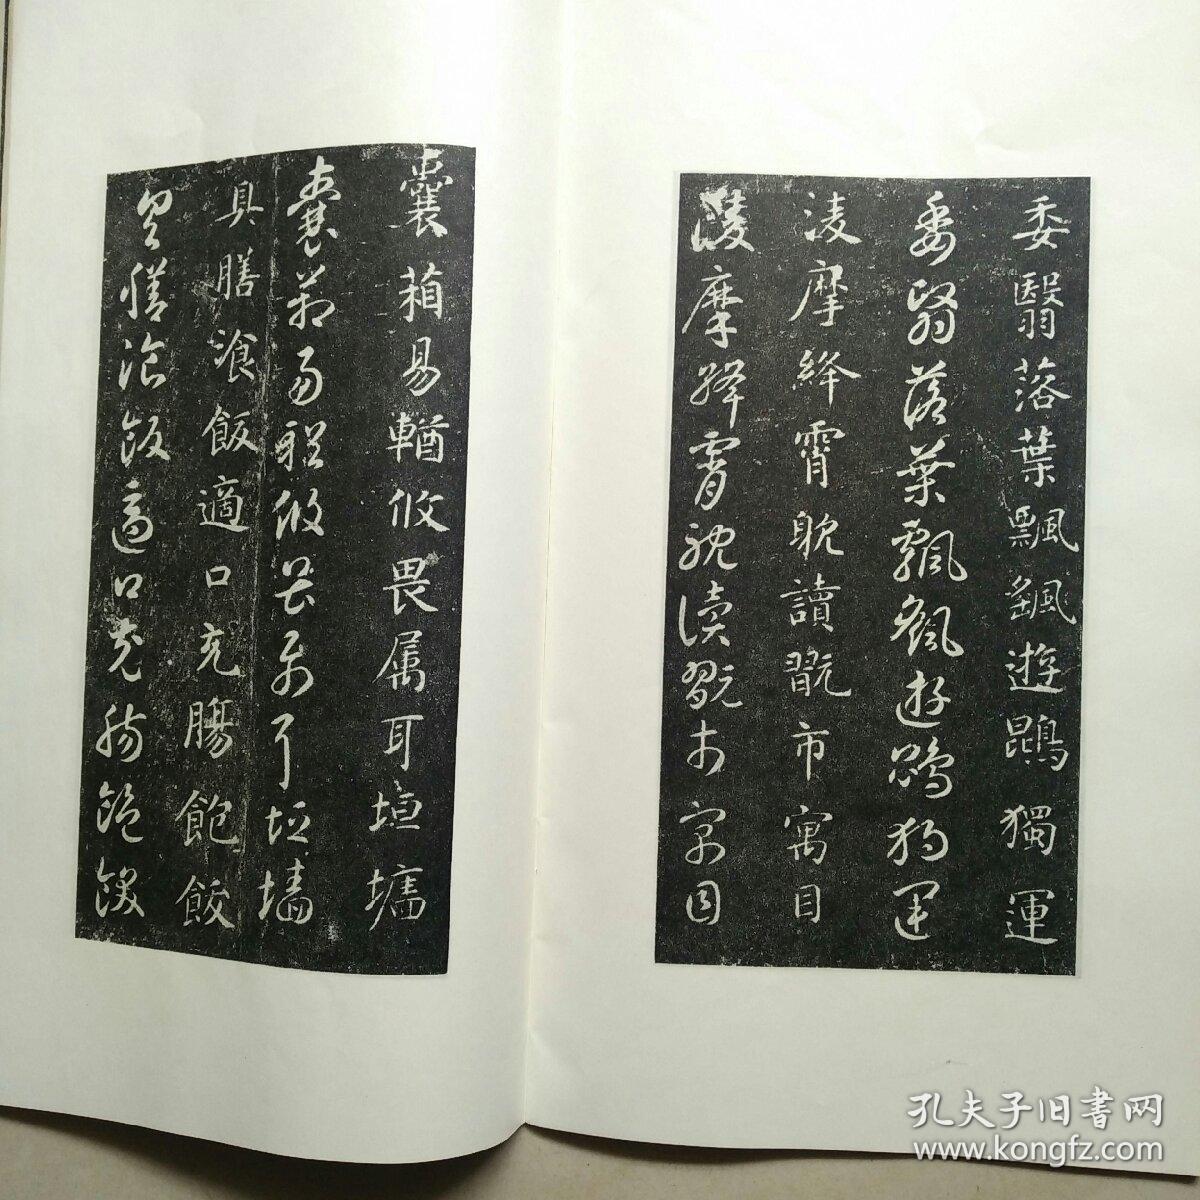 委翳落葉飄颻遊鵾獨運
委翳落葉飄颻遊鵾獨運
淩摩絳霄耽讀翫市寓目
淩摩絳霄耽讀翫市寓目
囊葙易輶攸畏属耳垣墻
囊葙易輶攸畏属耳垣墻
具膳湌飯適口充膓飽飫
具膳湌飯適口充膓飽飫
孔夫子旧书网
www.kongfz.com